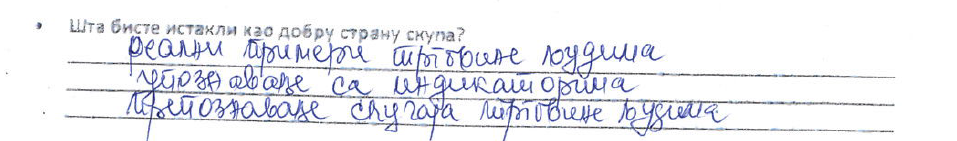 • Шта бисте истакли као добру страну скупа?
Реални примери трговине људима
упознавање са индикаторима
Препознавање случаја трговине људима